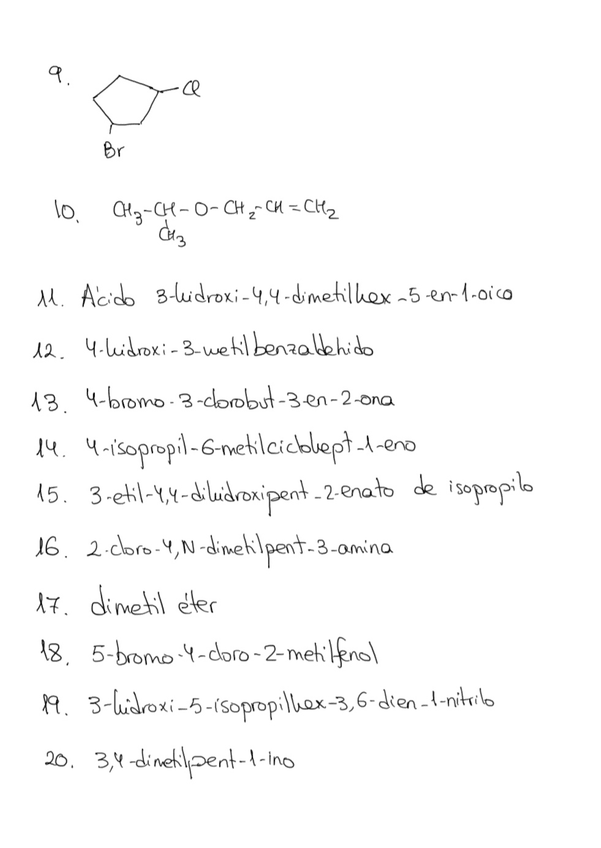 9.
Cl
Br
10. CH3-CH-O-CH2-CH=CH2
CH3
11. Ácido 3-hidroxi-4,4-dimetilhex-5-en-1-oico
12. 4-hidroxi-3-metilbenzaldehido
13. 4-bromo-3-clorobut-3-en-2-ona
14. 4-isopropil-6-metilciclohept-1-eno
15. 3-etil-4,4-dihidroxipent-2-enato de isopropilo
16. 2-cloro-4,N-dimetilpent-3-amina
17. dimetil éter
18. 5-bromo-4-cloro-2-metilfenol
19. 3-hidroxi-5-isopropilhex-3,6-dien-1-nitrilo
20. 3,4-dimetilpent-1-ino